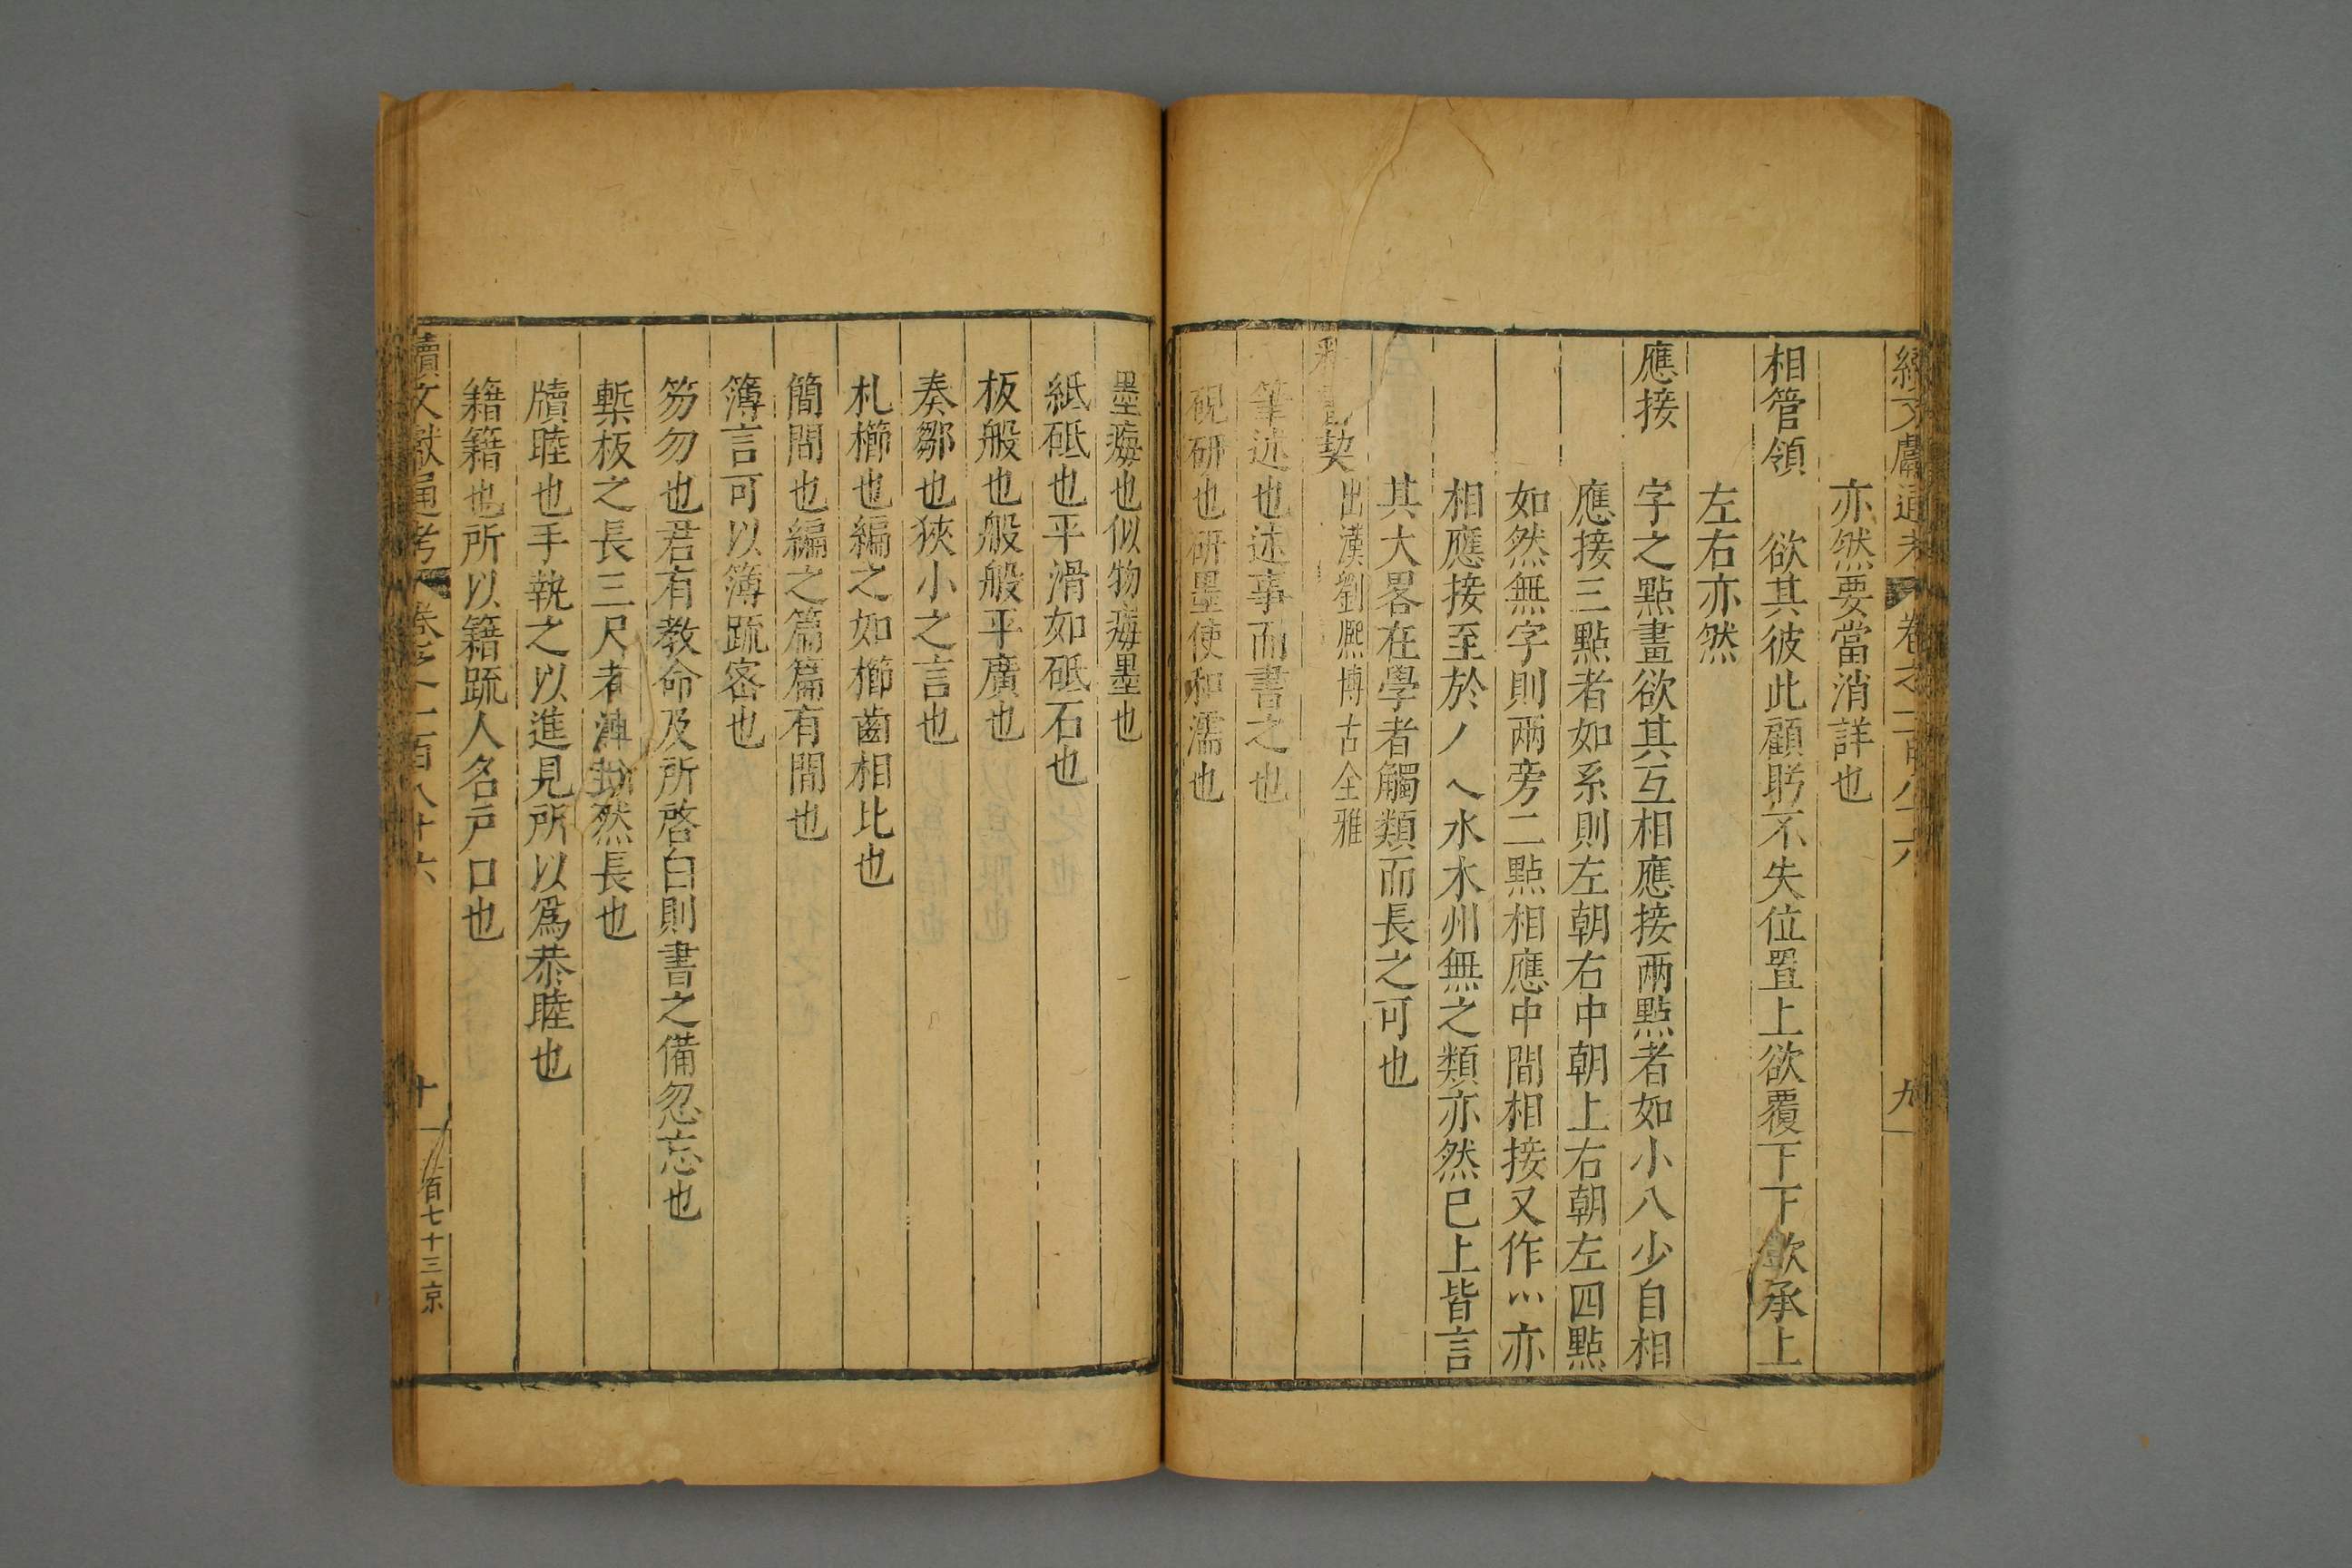 續文獻通考 卷之一百八十六 九
亦然要當消詳也
相管領 欲其彼此顧盻不失位置上欲覆下下欲承上
左右亦然
應接 字之點畫欲其互相應接兩點者如小八少自相
應接三點者如系則左朝右中朝上右朝左四點
如然無字則兩旁二點相應中間相接又作灬亦
相應接至於丿乀水木州無之類亦然已上皆言
其大畧在學者觸類而長之可也
釋書契 出漢劉熈博古全雅
筆述也述事而書之也
硯研也研墨使和濡也
墨痗也似物痗墨也
紙砥也平滑如砥石也
板般也般般平廣也
奏鄒也狹小之言也
札櫛也編之如櫛齒相比也
簡間也編之篇篇有間也
簿言可以簿䟽密也
笏勿也君有教命及所啓白則書之備忽忘也
槧板之長三尺者漸然長也
牘睦也手執之以進見所以爲恭睦也
籍籍也所以籍䟽人名戸口也
續文獻通考 卷之一百八十六 十 一百七十三京